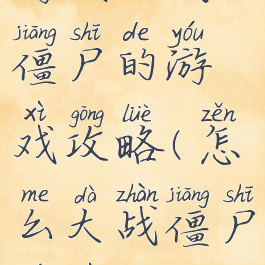 jiāng shī de yóu
僵尸的游
xì gōng lüè zěn
戏攻略(怎
me dà zhàn jiāng shī
么大战僵尸